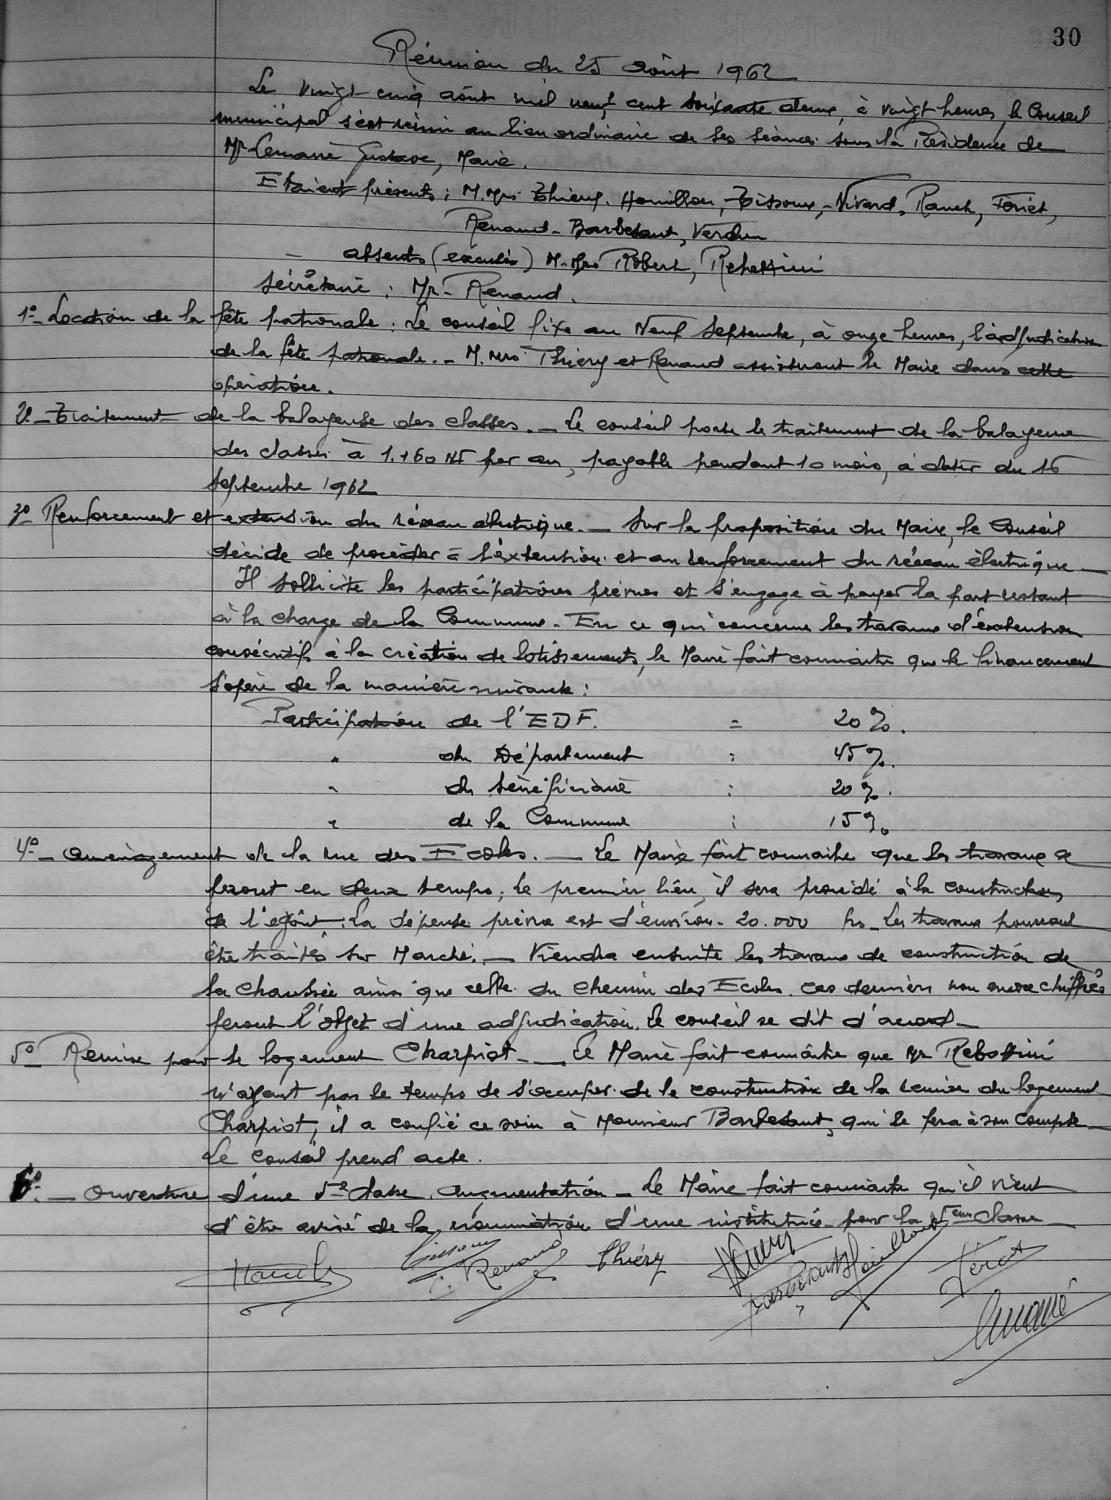 30
Réunion du 25 août 1962
Le vingt cinq août mil neuf cent soixante deux, à vingt heures, le Conseil
municipal s'est réuni au lieu ordinaire de ses séances sous la Présidence de
Mr Lemarié Gustave, Maire.
Etaient présents : M.Mrs Thiéry. Houillon, Tissoux, Nivard, Rauch, Feriet,
Renaud - Barbesant, Verdun
- absents (excusés) M.Mrs Robert, Rebottini
Secrétaire : Mr Renaud.
1° - Location de la fête patronale : Le conseil fixe au Neuf Septembre, à onze heures, l'adjudication
de la fête patronale. - M.Mrs Thiéry et Renaud assisteront le Maire dans cette
opération.
2° - Traitement de la balayeuse des classes. - Le conseil porte le traitement de la balayeuse
des classes à NF par an, payable pendant 10 mois, à dater du 16
Septembre 1962
3° Renforcement et extension du réseau électrique. - Sur la proposition du Maire, le Conseil
décide de procéder à l'extension et au renforcement du réseau électrique -
Il sollicite les participations prévues et s'engage à payer la part restant
à la charge de la Commune. En ce qui concerne les travaux d'extension
consécutifs à la création de lotissements, le Maire fait connaitre que le financement
s'opère de la manière suivante :
Participation de l'EDF. = 20 %.
" du Département : 45 %.
" du bénéficiaire : 20 %.
" de la Commune : 15 %
4° - Aménagement de la rue des Ecoles. - Le Maire fait connaitre que les travaux se
feront en deux temps, le premier lieu, il sera procédé à la construction
de l'egoût. La dépense prévue est d'environ 20.000 frs. Les travaux pourront
être traités sur Marché. - Viendra ensuite les travaux de construction de
la chaussée ainsi que celle du chemin des Ecoles. Ces derniers non encore chiffrés
feront l'objet d'une adjudication. Le conseil se dit d'accord -
5° Remise pour le logement Charpiot - - Le Maire fait connaitre que Mr Rebottini
n'ayant pas le temps de s'occuper de la construction de la remise du logement
Charpiot, il a confié ce soin à Monsieur Barbesant, qui le fera à son compte
Le Conseil prend acte.
6° - Ouverture d'une 5e classe. Augmentation - Le Maire fait connaitre qu'il vient
d'être avisé de la nomination d'une institutrice pour la 5eme classe
Tissoux Renaud Thiéry Barbesant Houillon Lemarié